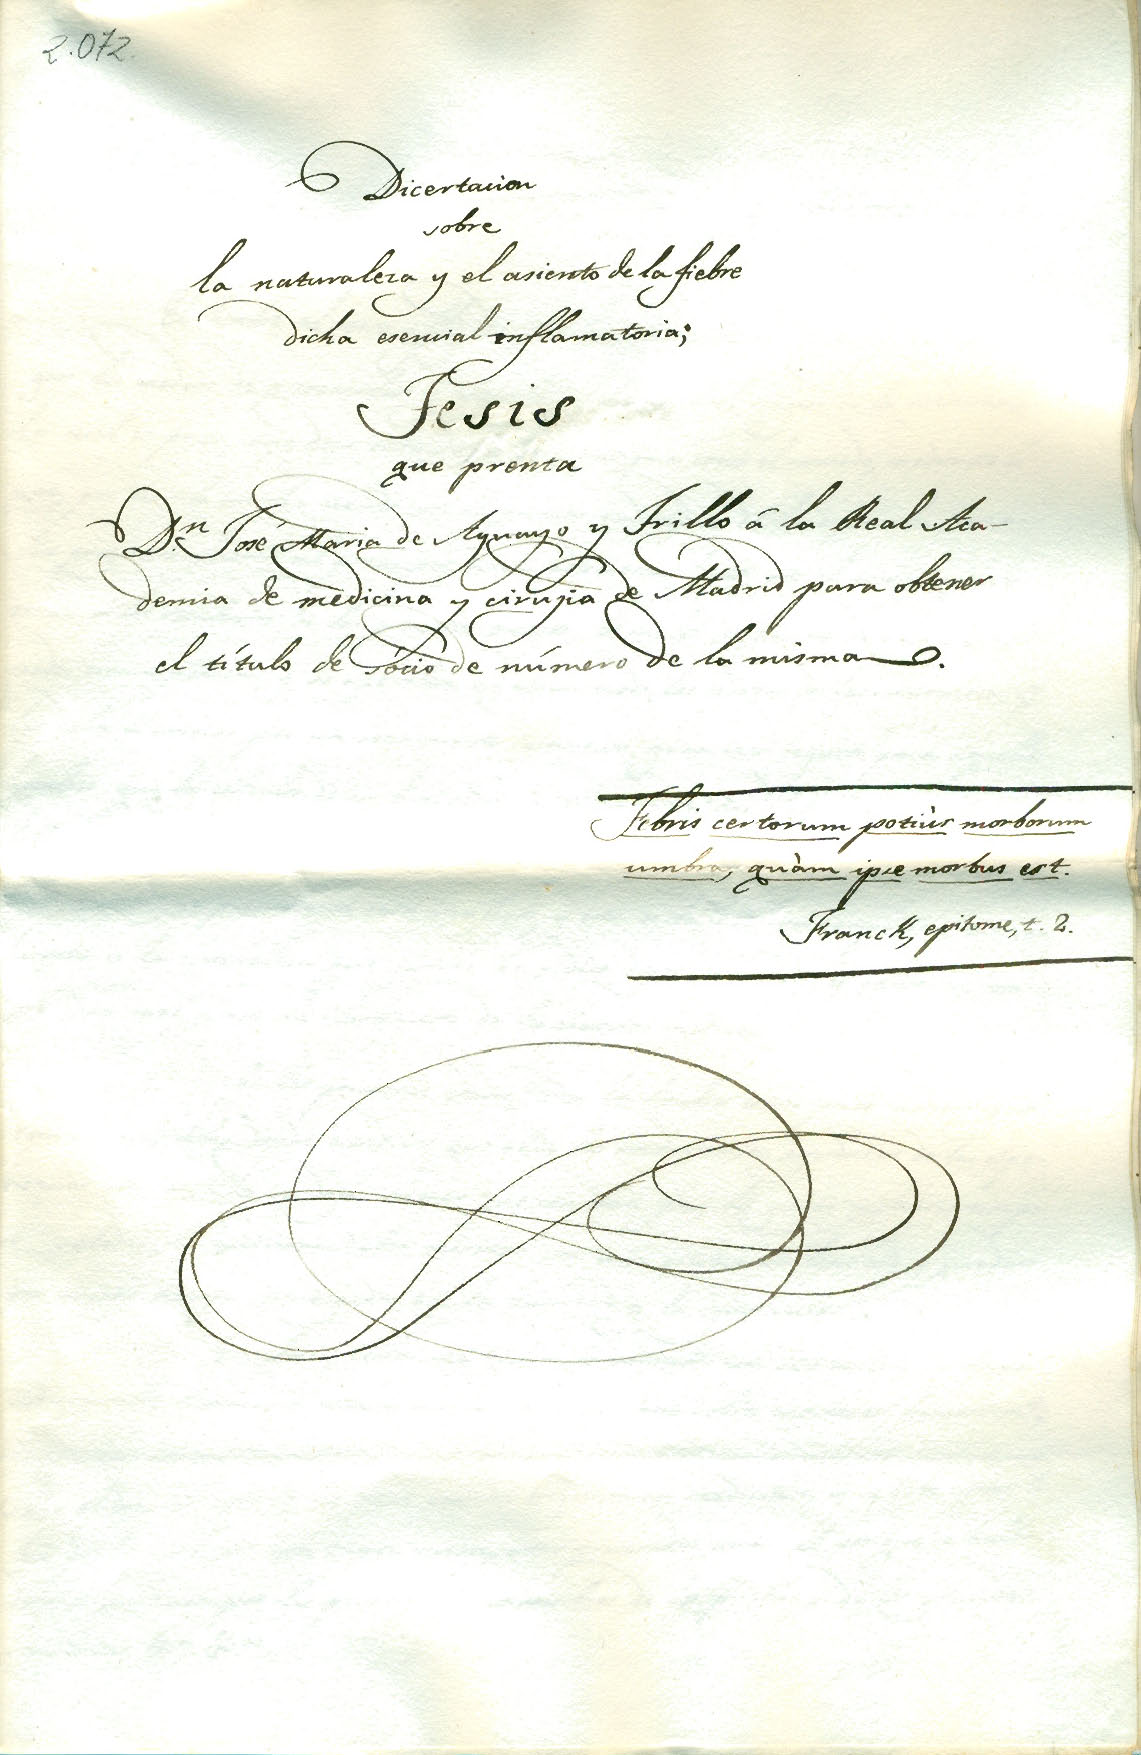 2.072.
Dicertacion
sobre
la naturaleza y el asiento de la fiebre
dicha esencial inflamatoria;
Tesis
que prenta
D.n José Maria de Aguayo y Trillo á la Real Aca-
demia de medicina y cirujía de Madrid para obtener
el título de sócio de número de la misma.
Febris certorum potiùs morborum
umbra, quàm ipse morbus est.
Franck, epitome, t. 2.